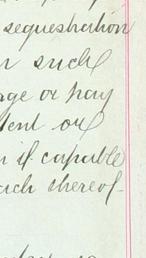 sequestration
such
age or pay
dent or
if capable
such thereof